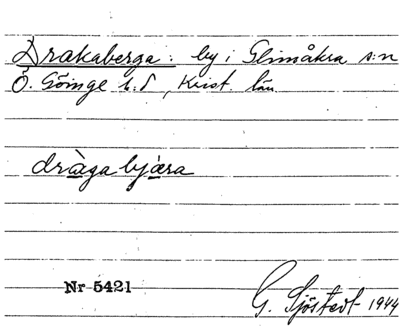 Drakaberga: by i Glimåkra s:n
Ö. Göinge h:d, Krist. län
dràgabjæra
Nr 5421
G. Sjöstedt 1944